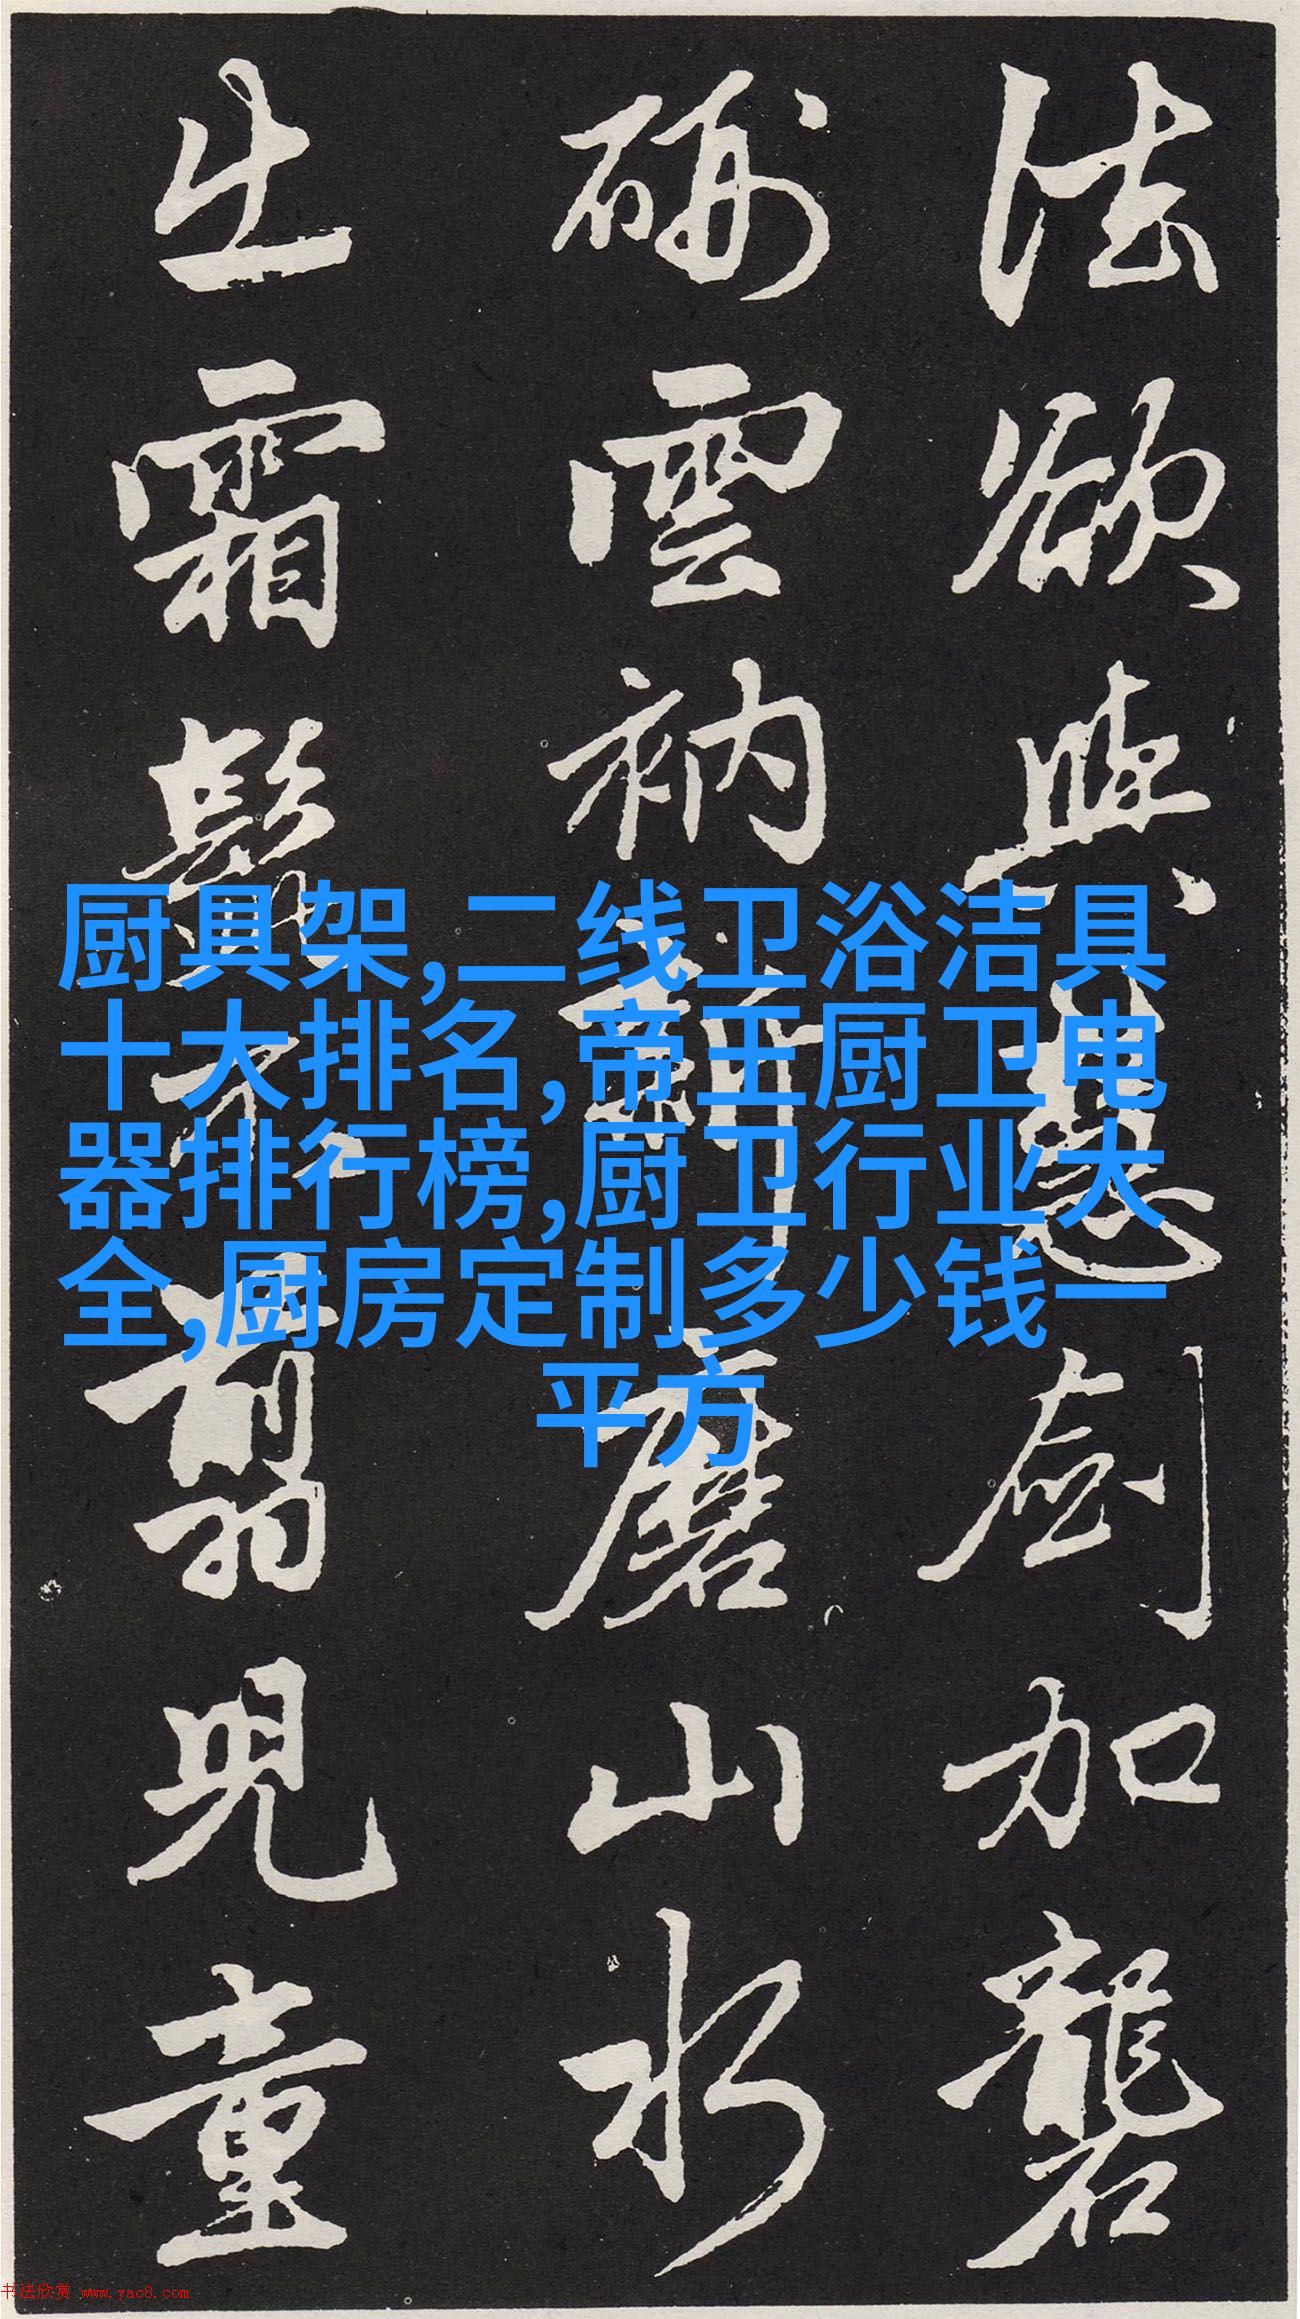 法欲与慧剑加礱
硎雲衲新磨山水
出霜髭不剪兒童
厨具架,二线卫浴洁具
十大排名,帝王厨卫电
器排行榜,厨卫行业大
全,厨房定制多少钱一
平方
书法欣赏 www.yac8.com